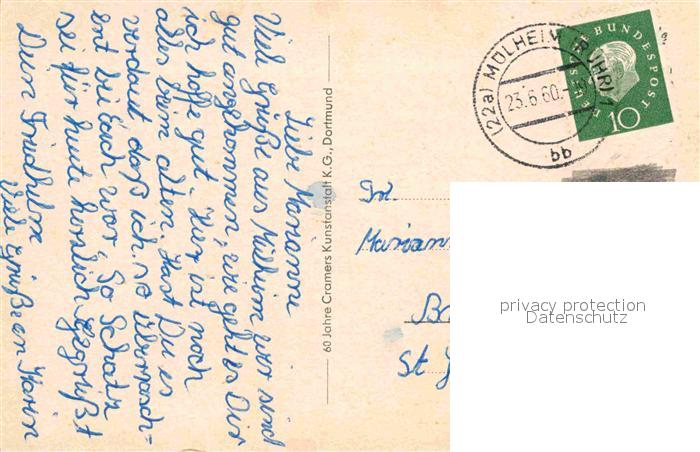 Liebe Marianne
Viel Grüße aus Mülheim, wir sind
gut angekommen, wie geht es Dir
ich hoffe gut. Hier ist noch
alles beim alten. Hast Du es
verdaut daß ich so überrasch=
ent bei Euch war, So Schatz
sei für heute herzlich gegrüßt
Dein Friedhelm
Viele Grüße an Karin
60 Jahre Cramers Kunstanstalt K.G., Dortmund
(22a) MÜLHEIM (RUHR) 1
23.6.60.
bb
DEUTSCHE BUNDESPOST
10
Frl.
Mariann
St
privacy protection
Datenschutz